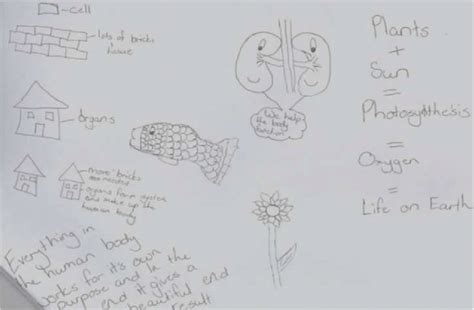 - cell
- lots of bricks
tissue
- organs
- more bricks
are needed
organs form system
and make up the
human body
We help
the body
function
Plants
+
Sun
=
Photosynthesis
=
Oxygen
=
Life on Earth
Everything in
the human body
works for it's own
purpose and in the
end it gives a
beautiful end
result